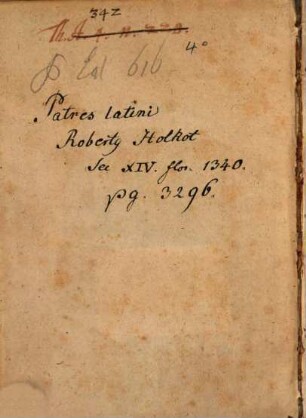 342
Th. A. q. n. 220.
4°
P Lat 616
Patres latini
Roberty Holkot
Sec XIV. flor. 1340.
pg. 3296.